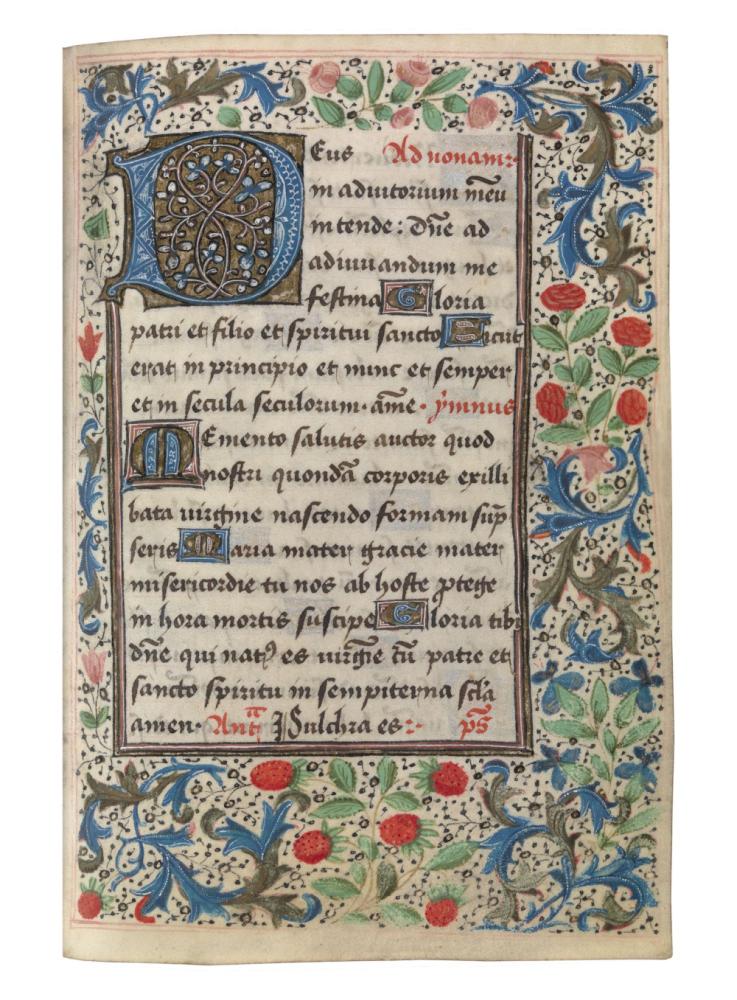 Deus Ad nonam
in adiutorium meū
intende: Dn̄e ad
adiuuandum me
festina Gloria
patri et filio et spiritui sancto Sicut
erat in principio et nunc et semper
et in secula seculorum. amē. ȳmnus
Memento salutis auctor quod
nostri quondā corporis ex illi
bata uirgine nascendo formam sūp
seris Maria mater gracie mater
misericordie tu nos ab hoste ꝓtege
in hora mortis suscipe Gloria tibi
dn̄e qui natꝰ es uirgīe cū patre et
sancto spiritu in sempiterna scl̄a
amen. Antᵃ Pulchra es: p̄s